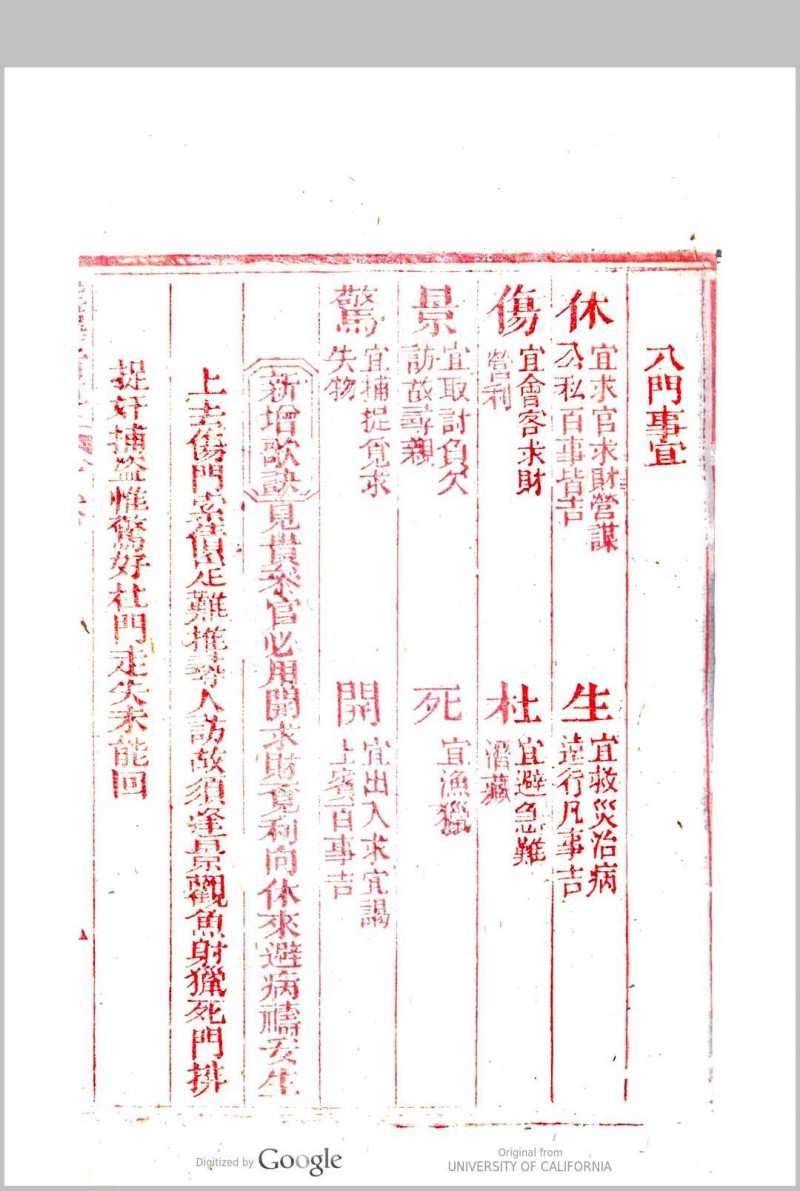 八門事宜
休 宜求官求財營謀
公私百事皆吉
生 宜救災治病
遠行凡事吉
傷 宜會客求財
營利
杜 宜避急難
潛藏
景 宜取討負欠
訪故尋親
死 宜漁獵
驚 宜捕捉覓求
失物
開 宜出入求宜謁
上賓百事吉
新增歌訣 見貴參官必用開求財覓利向休來避病禱安生
上去傷門索債定難推尋人訪故須逢景觀魚射獵死門排
捉奸捕盜惟驚好杜門走失未能回
Digitized by Google
Original from
UNIVERSITY OF CALIFORNIA